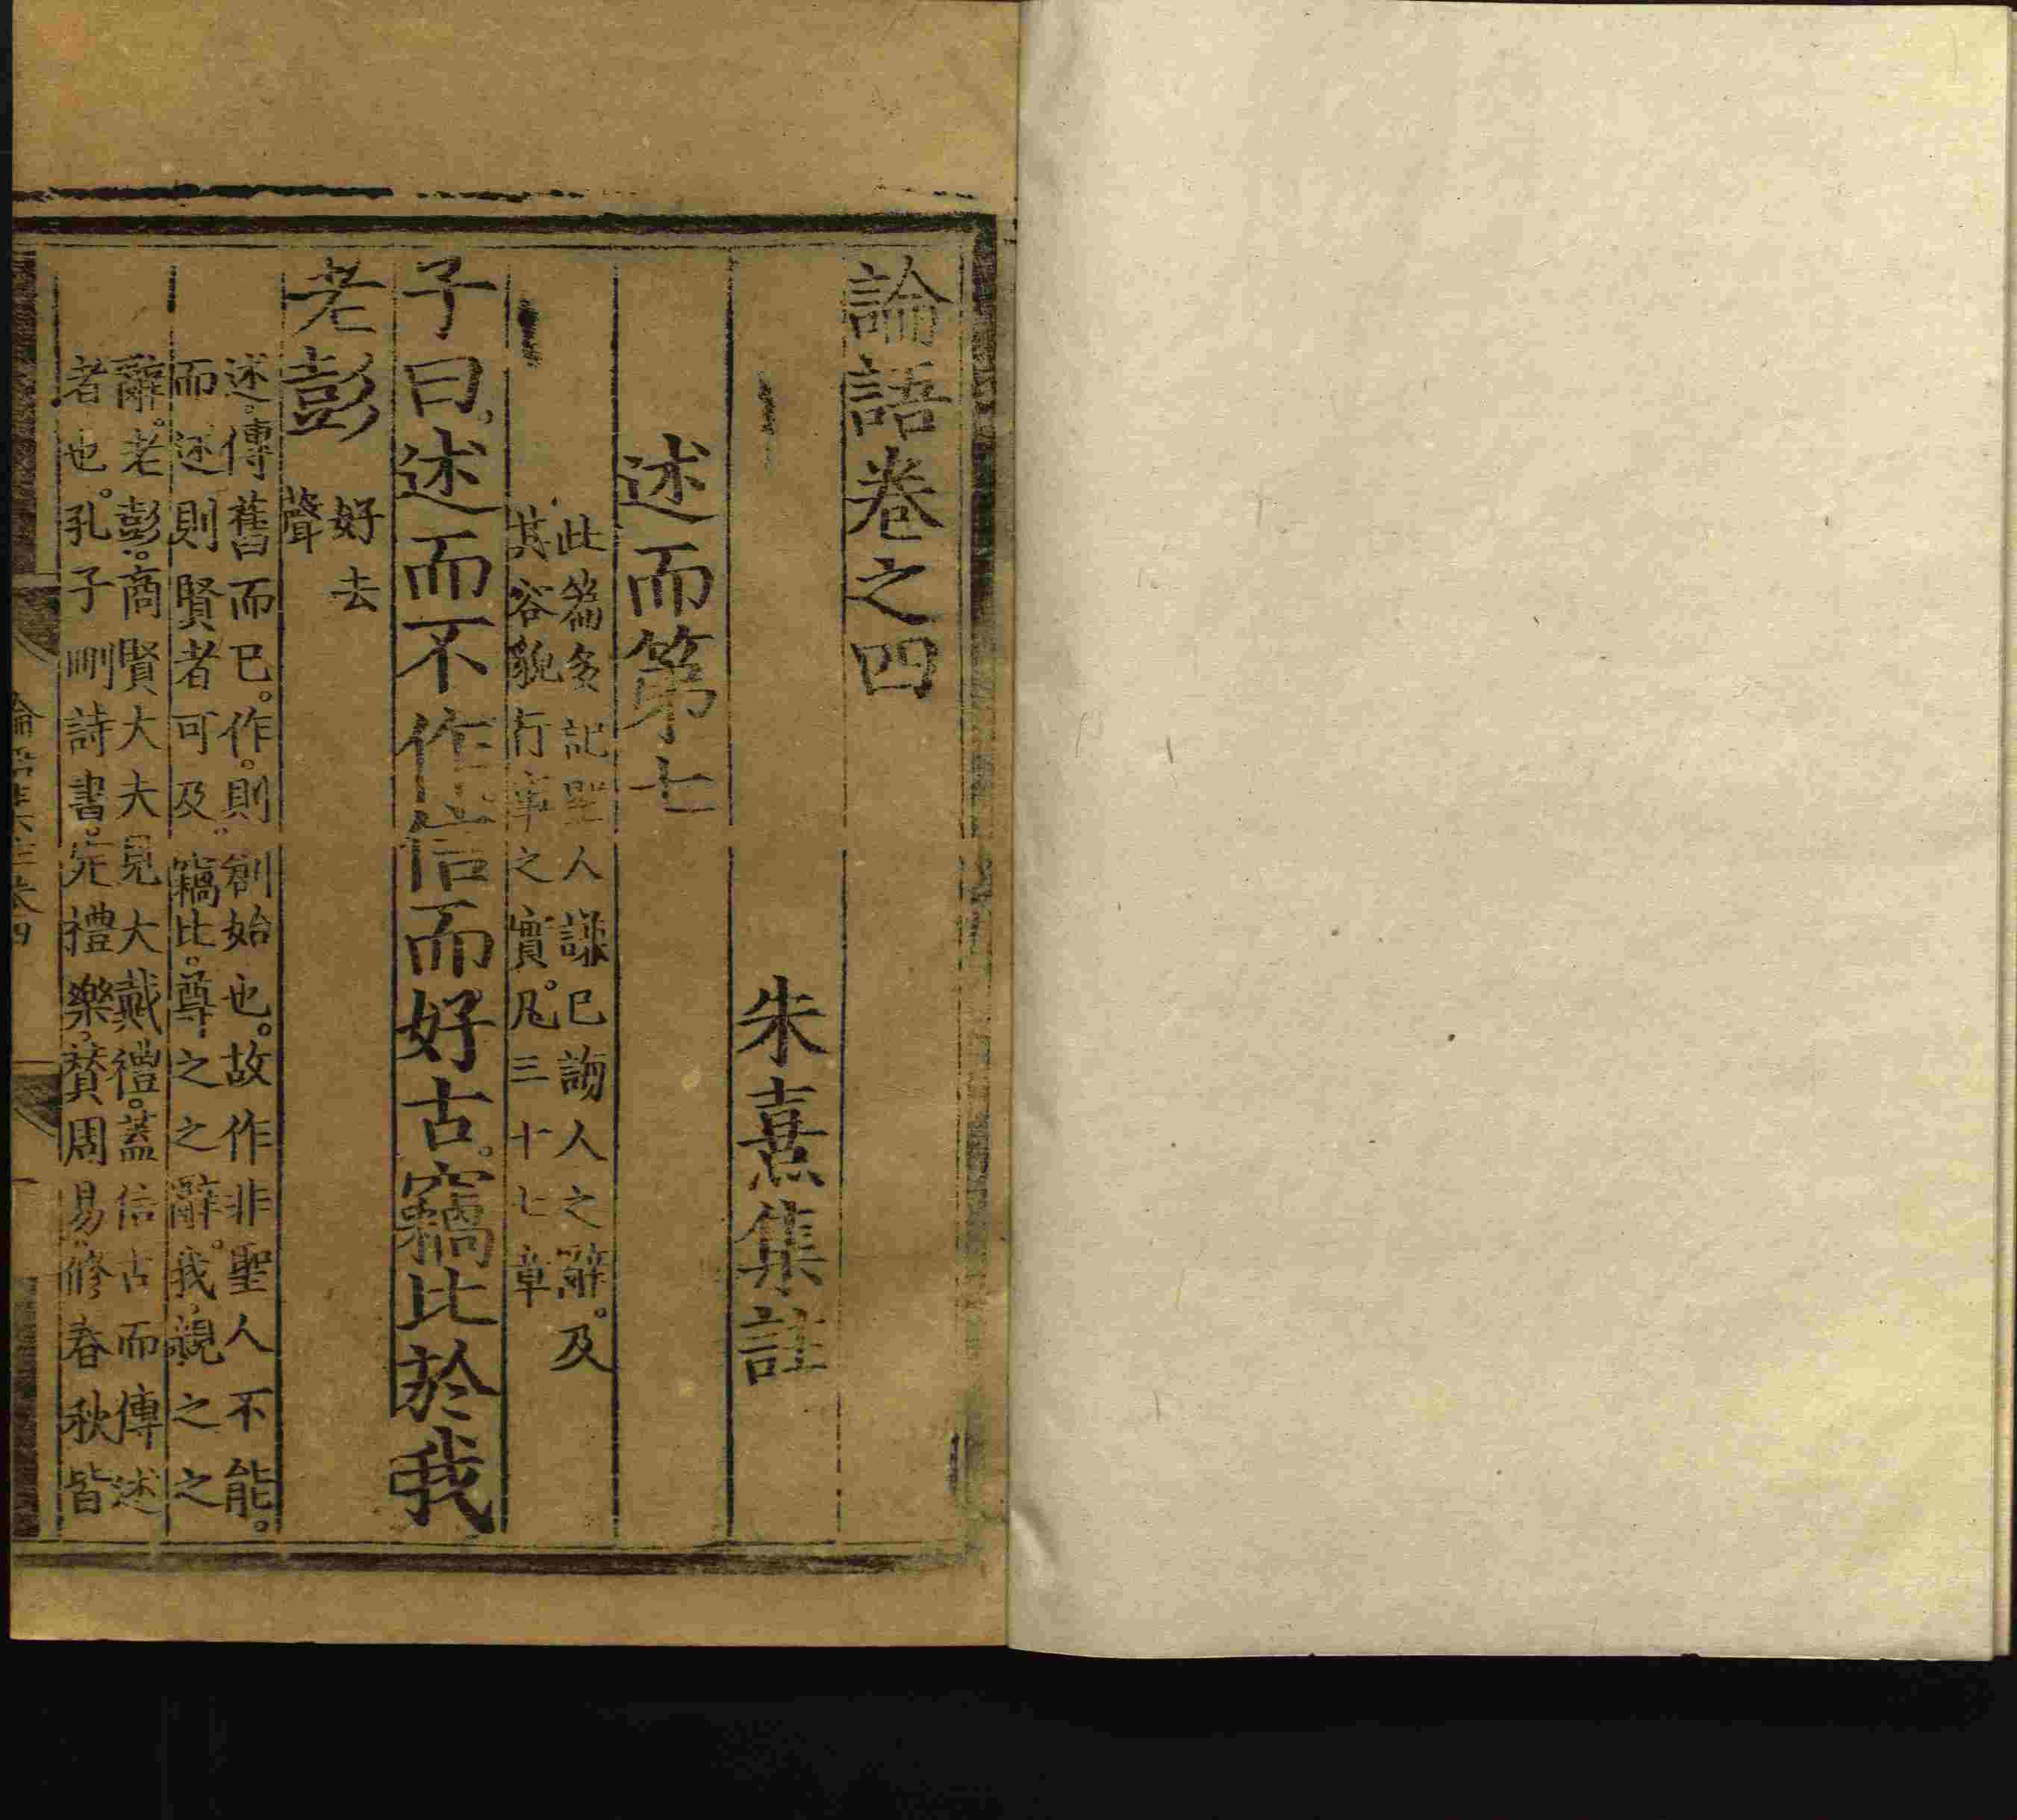 論語卷之四
朱熹集註
述而第七
此篇多記聖人謙已誨人之辭。及
其容貌行事之實。凡三十七章
子曰。述而不作。信而好古。竊比於我
老彭
好去
聲
述。傳舊而已。作。則創始也。故作非聖人不能。
而述則賢者可及。竊比。尊之之辭。我。親之之
辭。老彭。商賢大夫。見大戴禮。蓋信古而傳述
者也。孔子刪詩書。定禮樂。賛周易。修春秋。皆